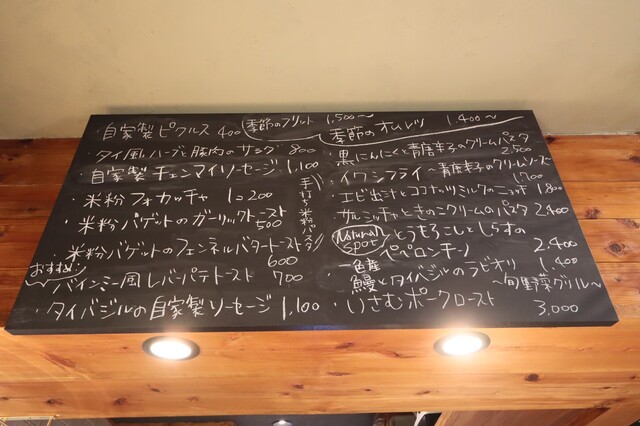 ・自家製ピクルス 400
季節のフリット 1,500〜
タイ風ハーブと豚肉のサラダ 800
・自家製チェンマイソーセージ 1,100
・米粉フォカッチャ 1コ200
・米粉バゲットのガーリックトースト 500
米粉バゲットのフェンネルバタートースト 600
おすすめ!
バインミー風レバーパテトースト 700
・タイバジルの自家製ソーセージ 1,100
季節のオムレツ 1,400〜
手打ち米粉パスタ
・黒にんにくと青唐辛子のクリームパスタ 2,500
・イワシフライ〜青唐辛子のクリームソース〜 1,700
・エビ出汁とココナッツミルクのニョッキ 1,800
・サルシッチャときのこクリームのパスタ 2,400
Natural Spot
とうもろこしとしらすの
ペペロンチーノ 2,400
一色産
・鰻とタイバジルのラビオリ 1,400
・いさむポークロースト 〜旬野菜グリル〜
3,000